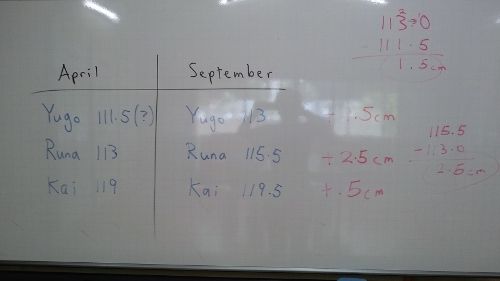 113.0
- 111.5
1.5cm
April September
Yugo 111.5(?) Yugo 113 + 1.5cm
Runa 113 Runa 115.5 + 2.5cm
Kai 119 Kai 119.5 + .5cm
115.5
-113.0
2.5cm